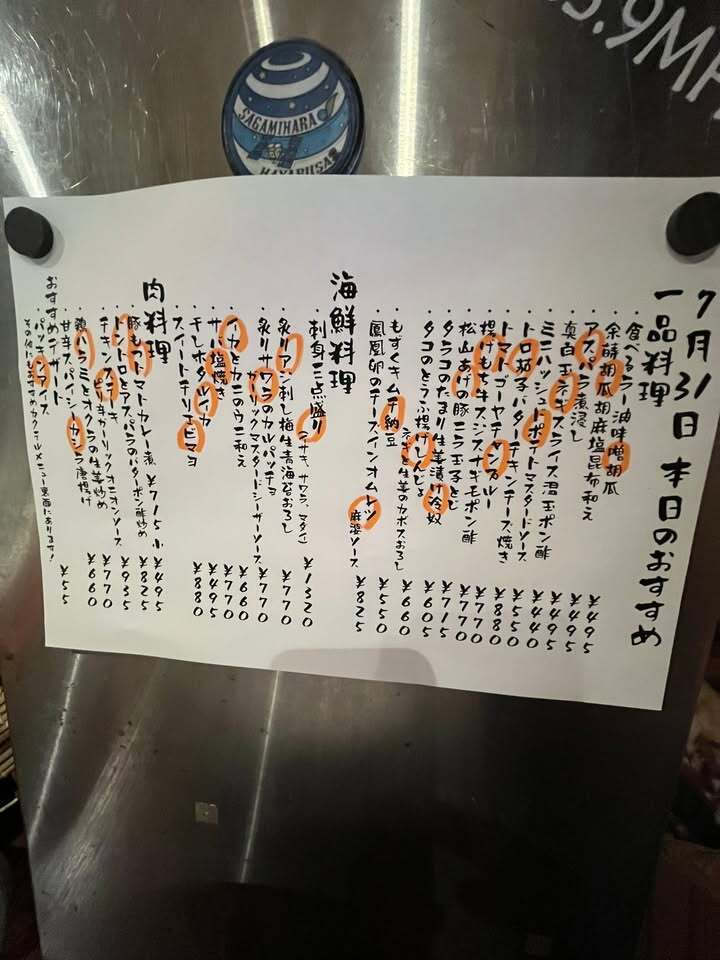 SAGAMIHARA
HAYABUSA
5.9MH
7月31日 本日のおすすめ
一品料理
・食べるラー油味噌胡瓜 ¥495
・余酵胡瓜胡麻塩昆布和え ¥495
・アスパラ煮浸し ¥495
・真白玉ネギスライス温玉ポン酢 ¥440
・ミニハッシュドポテトマスタードソース ¥550
・トロ茄子バターチキンチーズ焼き ¥880
・トマトゴーヤチャンプルー ¥770
・揚げもち牛スジネギポン酢 ¥770
・松山あげの豚ニラ玉子とじ ¥715
・タラコのたまり生姜漬け冷奴 ¥605
・タコのとうふ揚げしんじょ
・もずくキムチ納豆 ¥660
生姜のカボスおろし ¥550
・鳳凰卵のチーズインオムレツ 麻婆ソース ¥825
海鮮料理
・刺身三点盛り(イサキ、サワラ、マダイ) ¥1320
・炙りアジ刺し梅生青海苔おろし ¥770
・炙りサワラのカルパッチョ
ガーリックマスタードシーザーソース ¥770
・イカとカニのウニ和え ¥660
・サバ塩焼き ¥770
・干しホタルイカ ¥495
・スイートチリエビマヨ ¥880
肉料理
・豚もつトマトカレー煮 ¥715 小¥495
・トントロとアスパラのバターポン酢炒め ¥825
・チキンステーキ
ガーリックオニオンソース ¥935
・鶏ハラミとオクラの生姜炒め ¥770
・甘辛スパイシーカシラ唐揚げ ¥660
おすすめデザート
・パッキンアイス ¥55
その他にもおすすめカクテルメニュー裏面にあります!